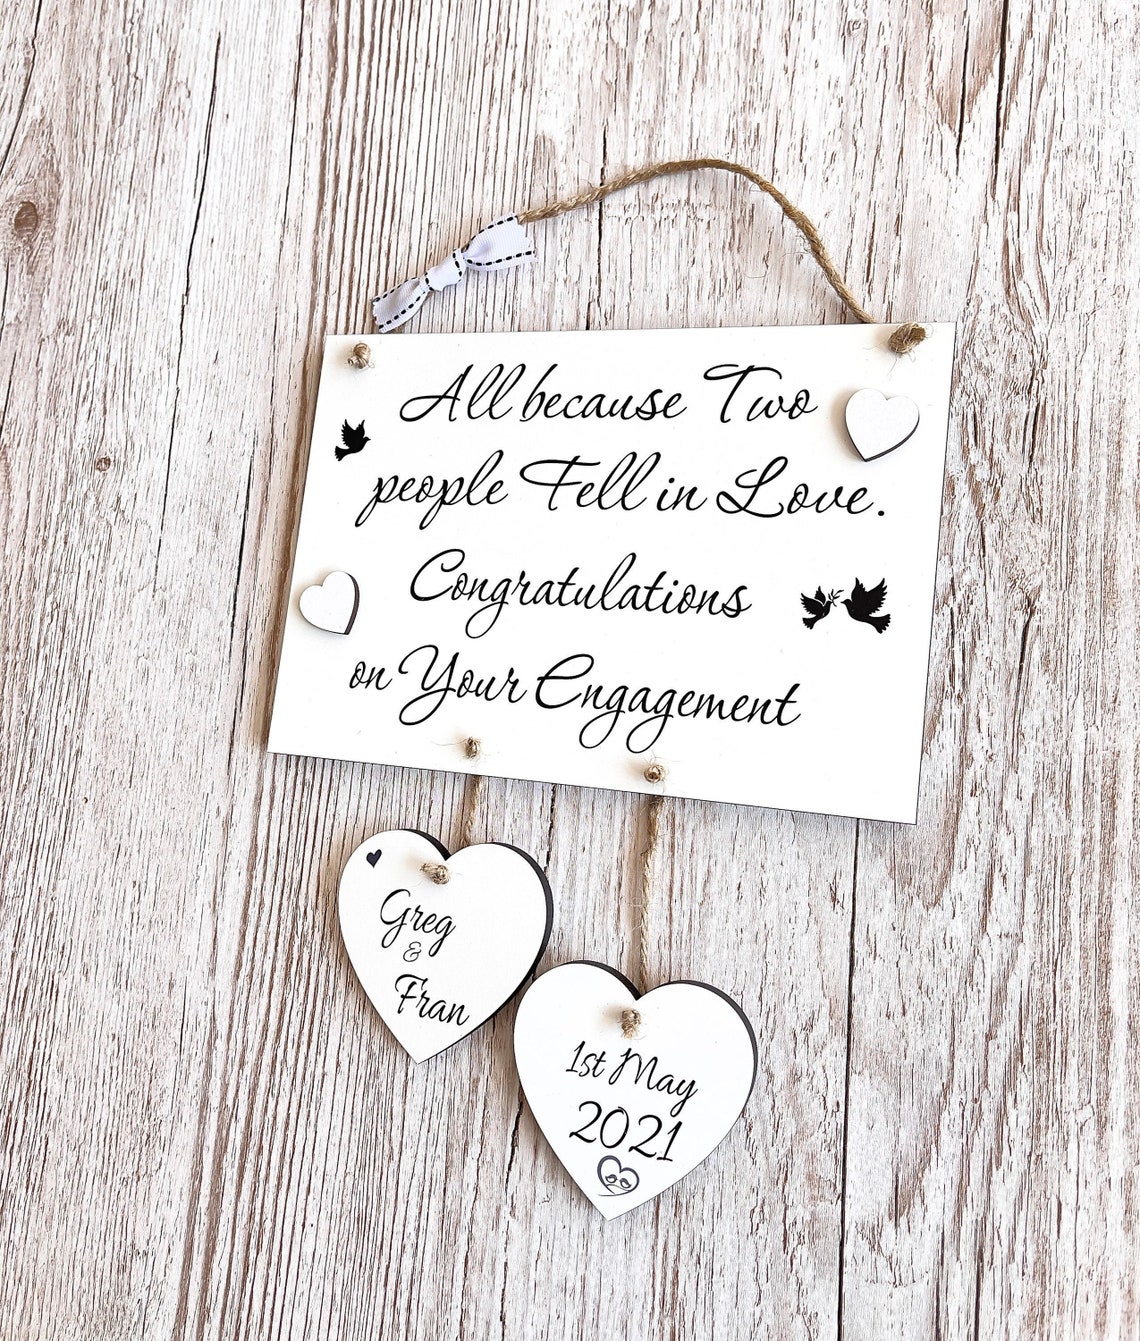 All because Two
people Fell in Love.
Congratulations
on Your Engagement
Greg
&
Fran
1st May
2021